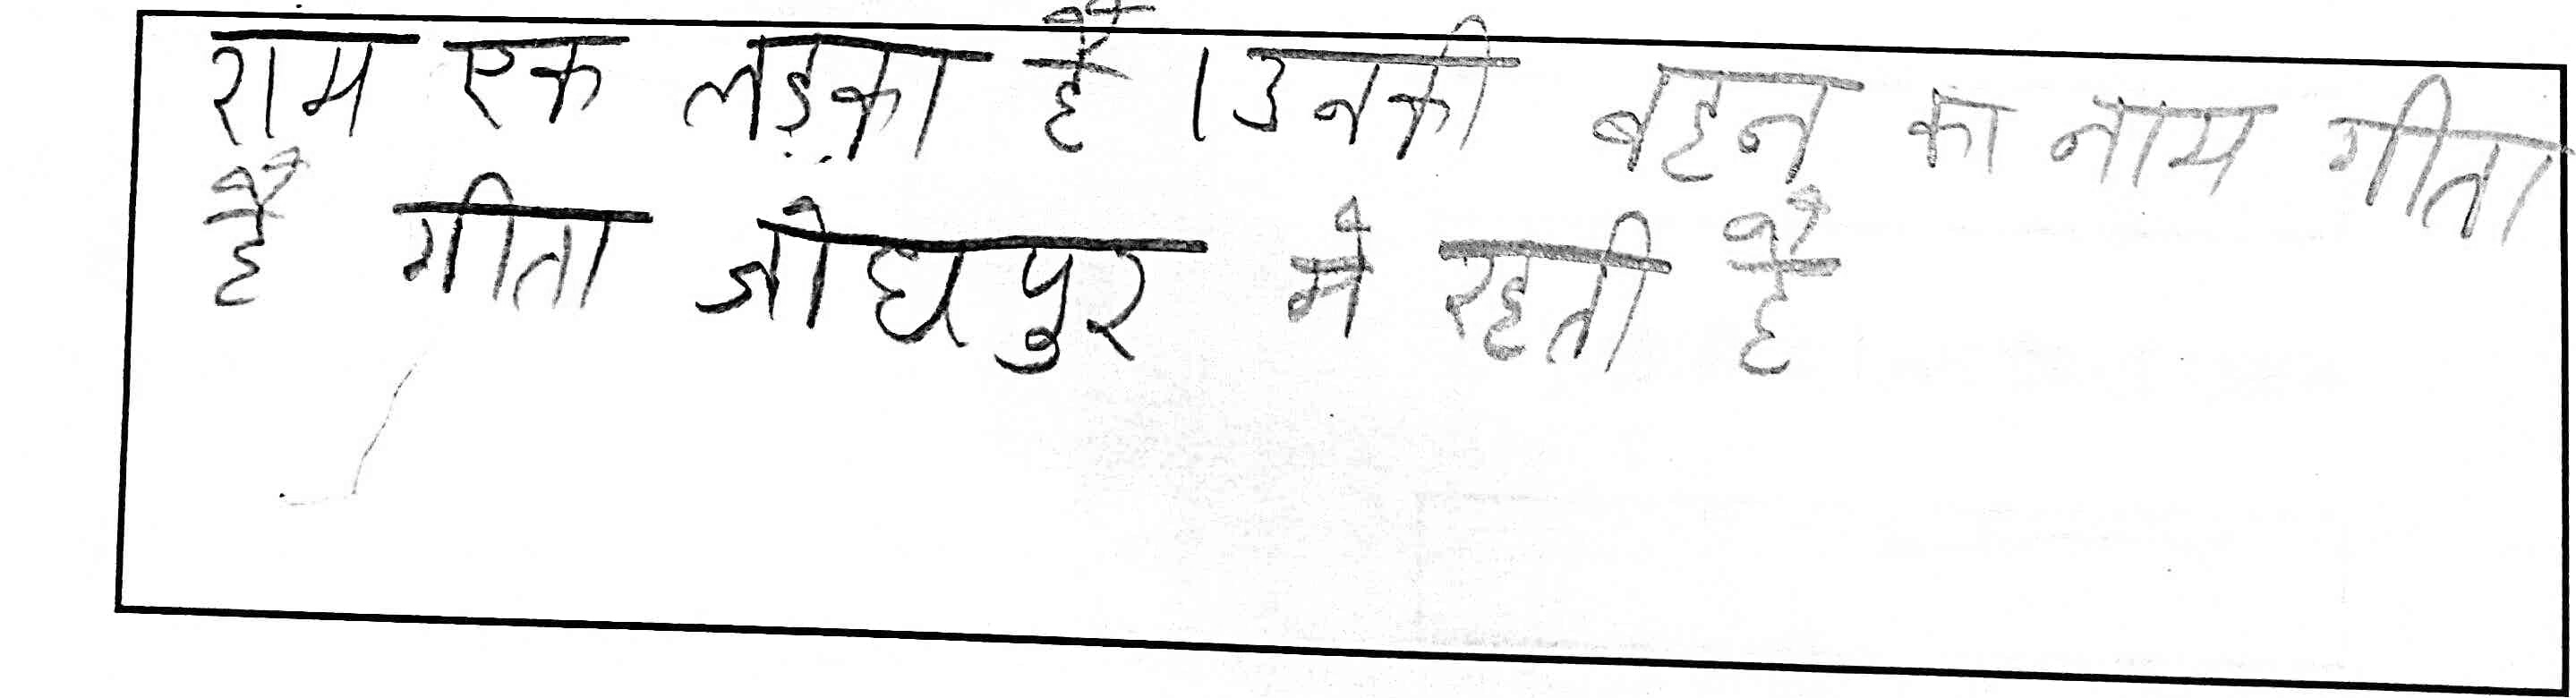 राम एक लड़का है । उनकी बहन का नाम गीता
है गीता जोधपुर मे रहती है